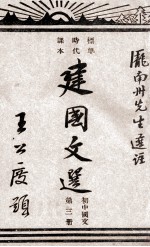 龐南冊先生選註
標準
時代
課本
建國文選
初中國文
第三冊
王公度題